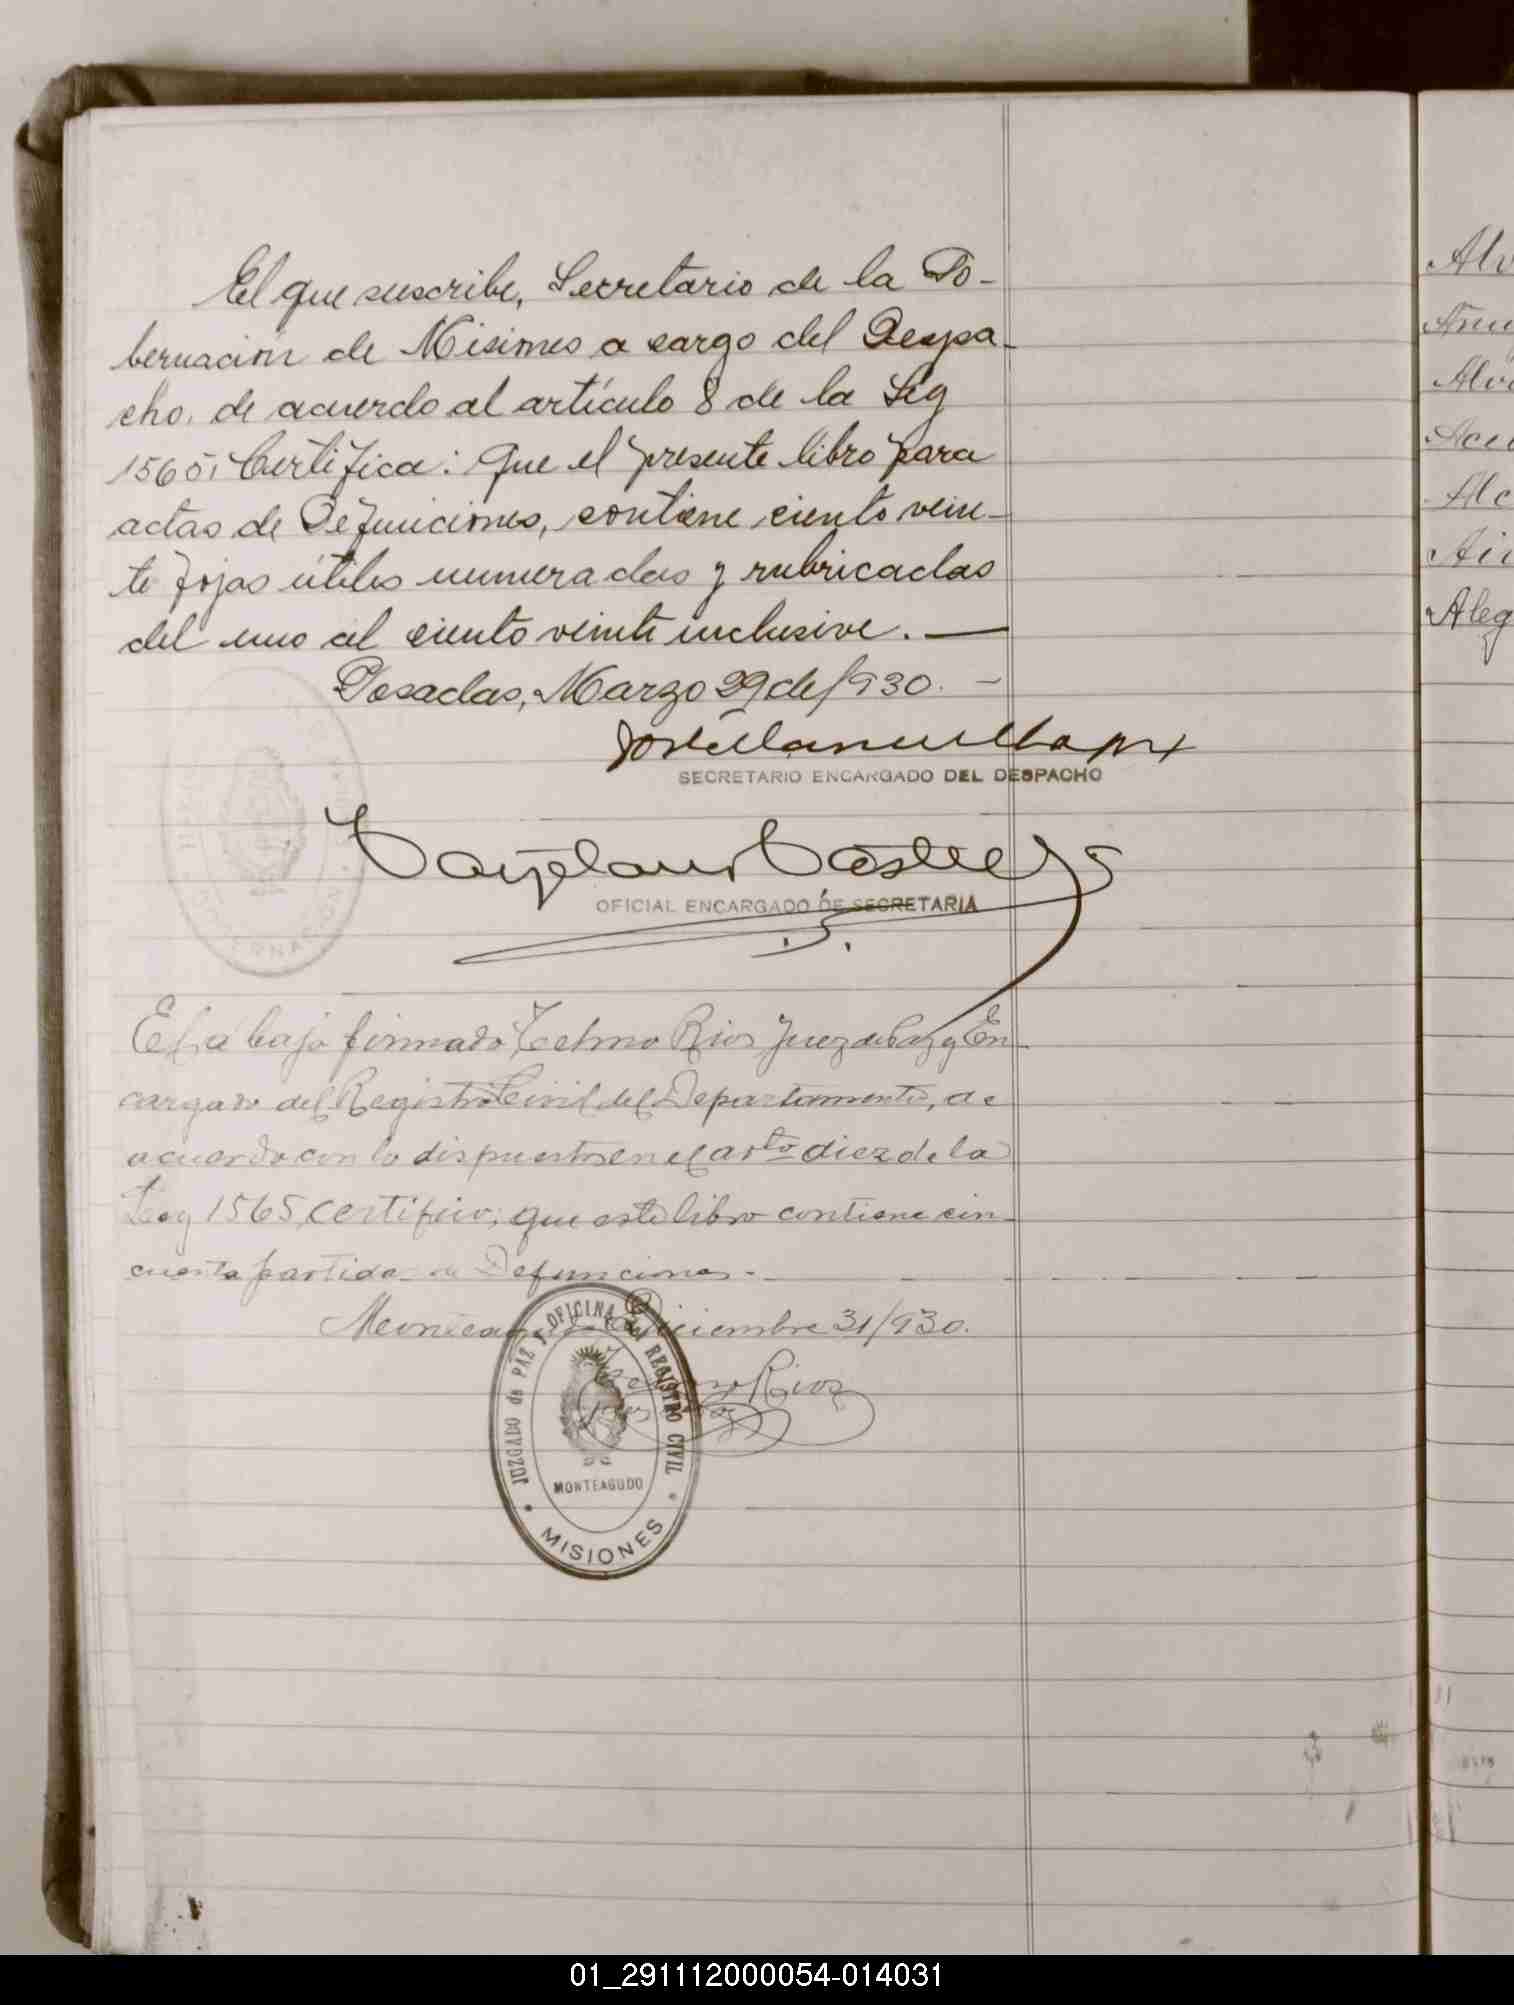 El que suscribe, Secretario de la Go-
bernación de Misiones a cargo del Despa-
cho, de acuerdo al artículo 8 de la Ley
1565, Certifica: Que el presente libro para
actas de Defunciones, contiene ciento vein-
te fojas útiles numeradas y rubricadas
del uno al ciento veinte inclusive. —
Posadas, Marzo 29 de/930. -
SECRETARIO ENCARGADO DEL DESPACHO
OFICIAL ENCARGADO DE SECRETARIA
GOBERNACION
El abajo firmado, Telmo Rios Juez de Paz y En-
cargado del Registro Civil del Departamento, de
acuerdo con lo dispuesto en el artº diez de la
Ley 1565, certifico; que este libro contiene cin-
cuenta partidas de Defunciones.-
Monteagudo Diciembre 31/930.
Telmo Rios
Juez de Paz
JUZGADO de PAZ Y OFICINA DEL REGISTRO CIVIL
MONTEAGUDO
MISIONES
Alv
Alv
Ace
Alc
Aleg
01_291112000054-014031